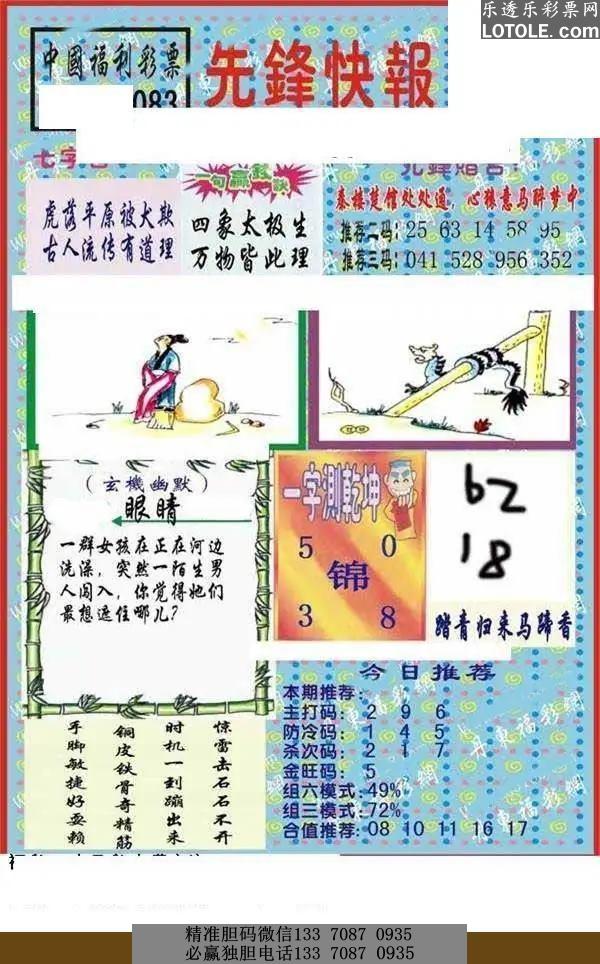 乐透乐彩票网
LOTOLE.COM
中國福利彩票
083
先鋒快報
七字
一句赢
秦楼楚馆处处通，心猿意马醉梦中
虎落平原被犬欺
古人流传有道理
四象太极生
万物皆此理
推荐二码: 25 63 14 58 95
推荐三码: 041 528 956 352
(玄機幽默)
眼睛
一群女孩在正在河边
洗澡，突然一陌生男
人闯入，你觉得她们
最想遮住哪儿?
一字测乾坤
5 0
锦
3 8
62
18
踏青归来马蹄香
今日推荐
本期推荐:
主打码: 2 9 6
防冷码: 1 4 5
杀次码: 2 1 7
金旺码: 5
组六模式: 49%
组三模式: 72%
合值推荐: 08 10 11 16 17
手脚敏捷好耍赖
铜皮铁骨奇精筋
时机一到蹦出来
惊雷击石石不开
精准胆码微信133 7087 0935
必赢独胆电话133 7087 0935